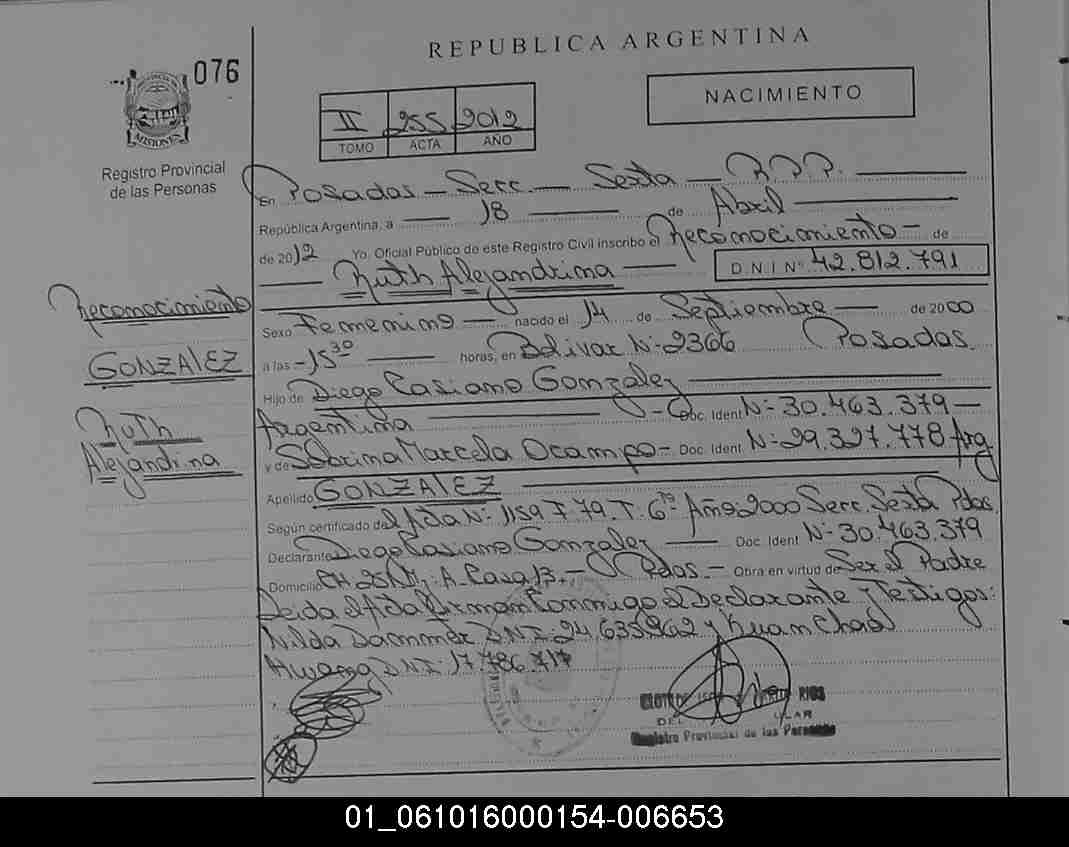 REPUBLICA ARGENTINA
076
NACIMIENTO
II 255 2012
TOMO ACTA AÑO
MISIONES
Registro Provincial
de las Personas
En Posadas - Secc. - Sexta - R.P.P.
República Argentina, a 18 de Abril
de 2012 Yo, Oficial Público de este Registro Civil inscribo el Reconocimiento - de
Ruth Alejandrina D N I Nº 42.812.791
Reconocimiento
GONZALEZ
Ruth
Alejandina
Sexo Femenino - nacido el 14 de Septiembre - de 2000
a las - 15 30 horas, en Bolivar N: 2366 Posadas
Hijo de Diego Casiano Gonzalez
Argentina - Doc. Ident N: 30.463.379 -
y de Sabrina Marcela Ocampo - Doc. Ident. N: 29.327.778 Arg
Apellido GONZALEZ
Según certificado del Acta N: 1159 F 79 T. 6 Año 2000 Secc. Sexta Pdas.
Declarante Diego Casiano Gonzalez - Doc. Ident N: 30.463.379
Domicilio CH A. Casa 13. - Pdas. - Obra en virtud de Ser el Padre
Leida el Acta Firman Conmigo el Declarante y Testigos:
Nilda DNI: 24.635.262 y Kuan Chao
Hwang DNI: 17.786.717
RIOS
Registro Provincial de las Personas
01_061016000154-006653